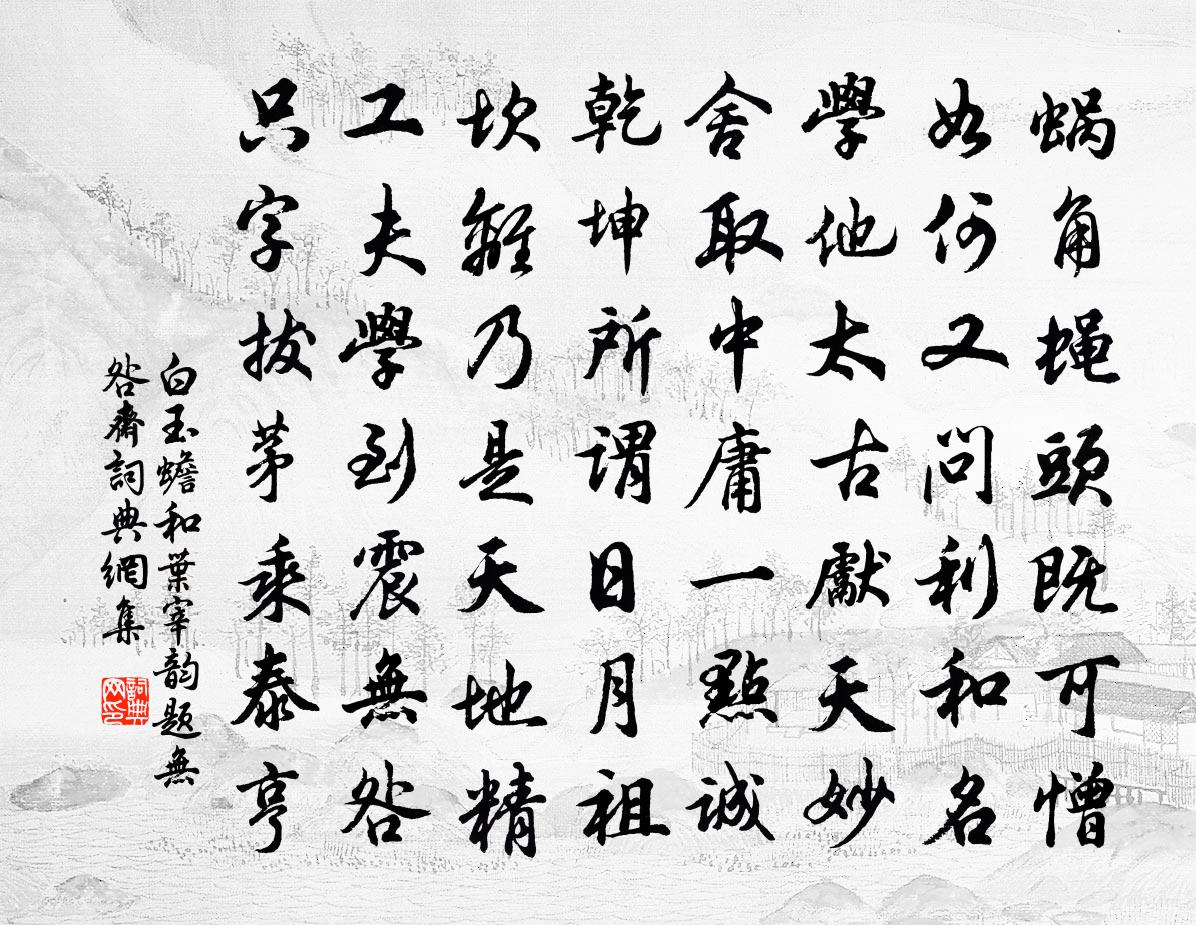 蜗角蝇頭既可憎
如何又問利和名
學他太古獻天妙
舍取中庸一點誠
乾坤所謂日月祖
坎離乃是天地精
工夫學到震無咎
只字拔茅乘泰亨
白玉蟾和葉宰韵题無
咎齋詞典網集
詞典
网印